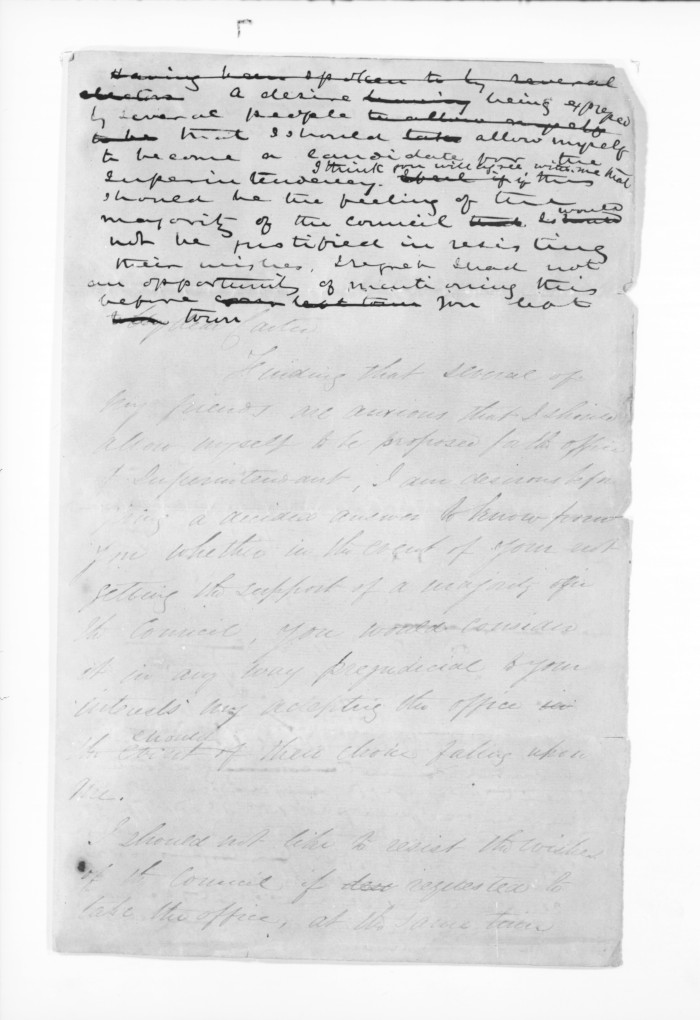 Having been spoken to by several
electors A desire having being expressed
by several people to allow myself
to be that I should take allow myself
to become a candidate for the
Superintendency. I think you will agree with me that if this
should be the feeling of the
majority of the council that I should would
not be justified in resisting
their wishes. I regret I had not
an opportunity of mentioning this
before you left
town
My dear
Finding that several of
my friends are anxious that I should
allow myself to be proposed for the office
of Superintendent, I am desirous before
giving a decided answer to know from
you whether in the event of your not
getting the support of a majority in
the Council, you would consider
it in any way prejudicial to your
interests my accepting the office in
the event of their choice falling upon
me.
I should not like to resist the wishes
of the Council if requested to
take the office, at the same time